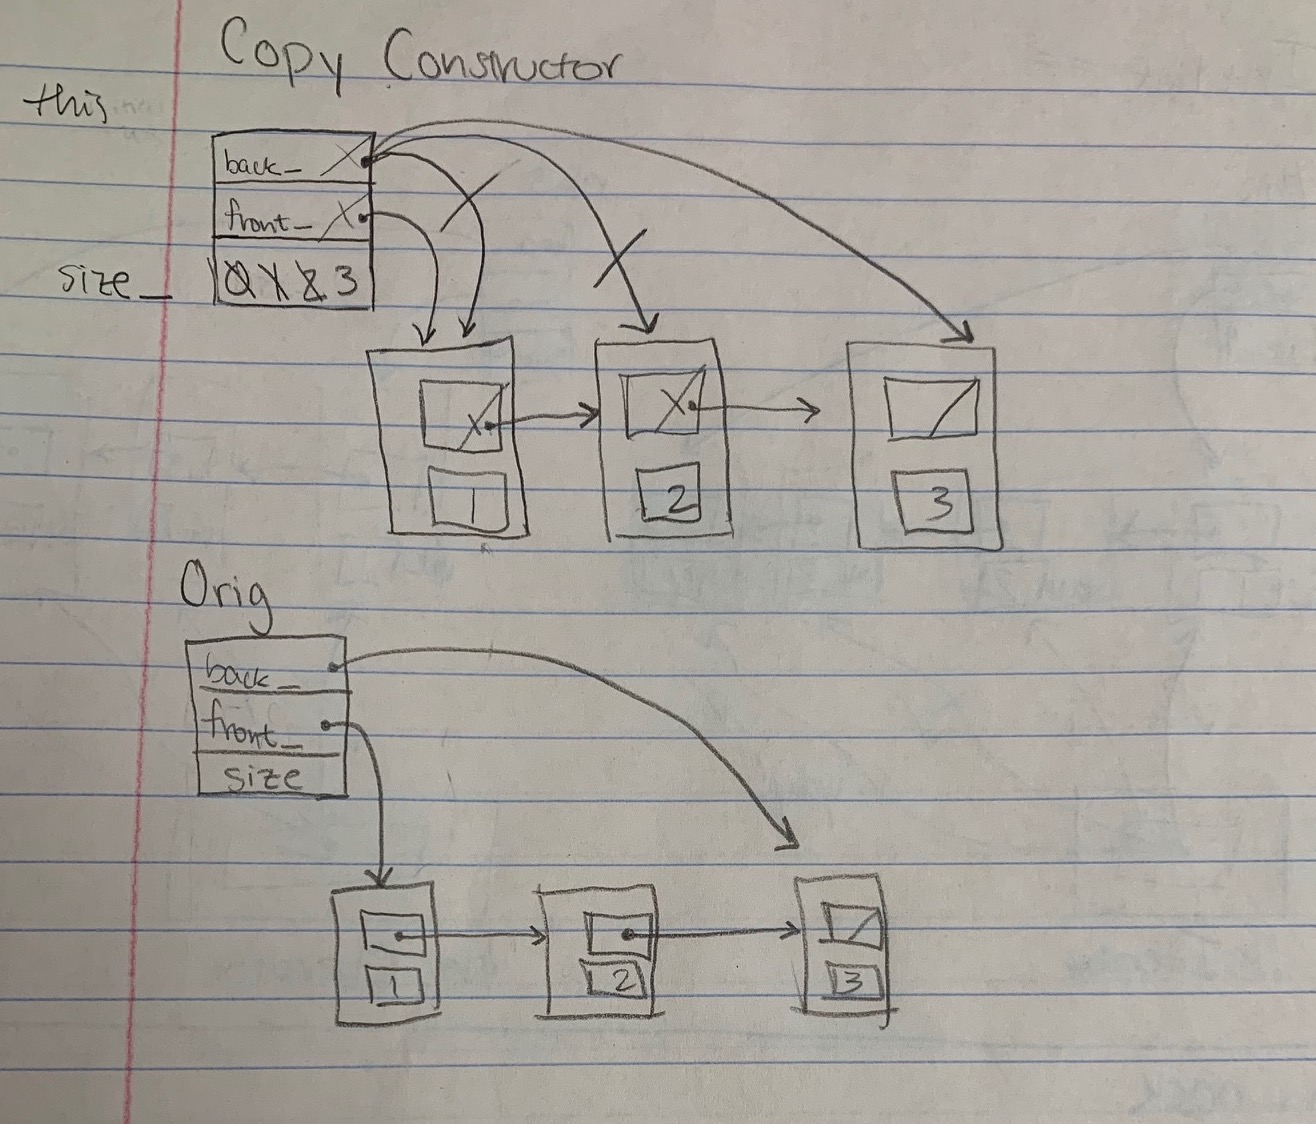 Copy Constructor
this
back_
front_
size_ 0 1 2 3
1 2 3
Orig
back_
front_
size
1 2 3